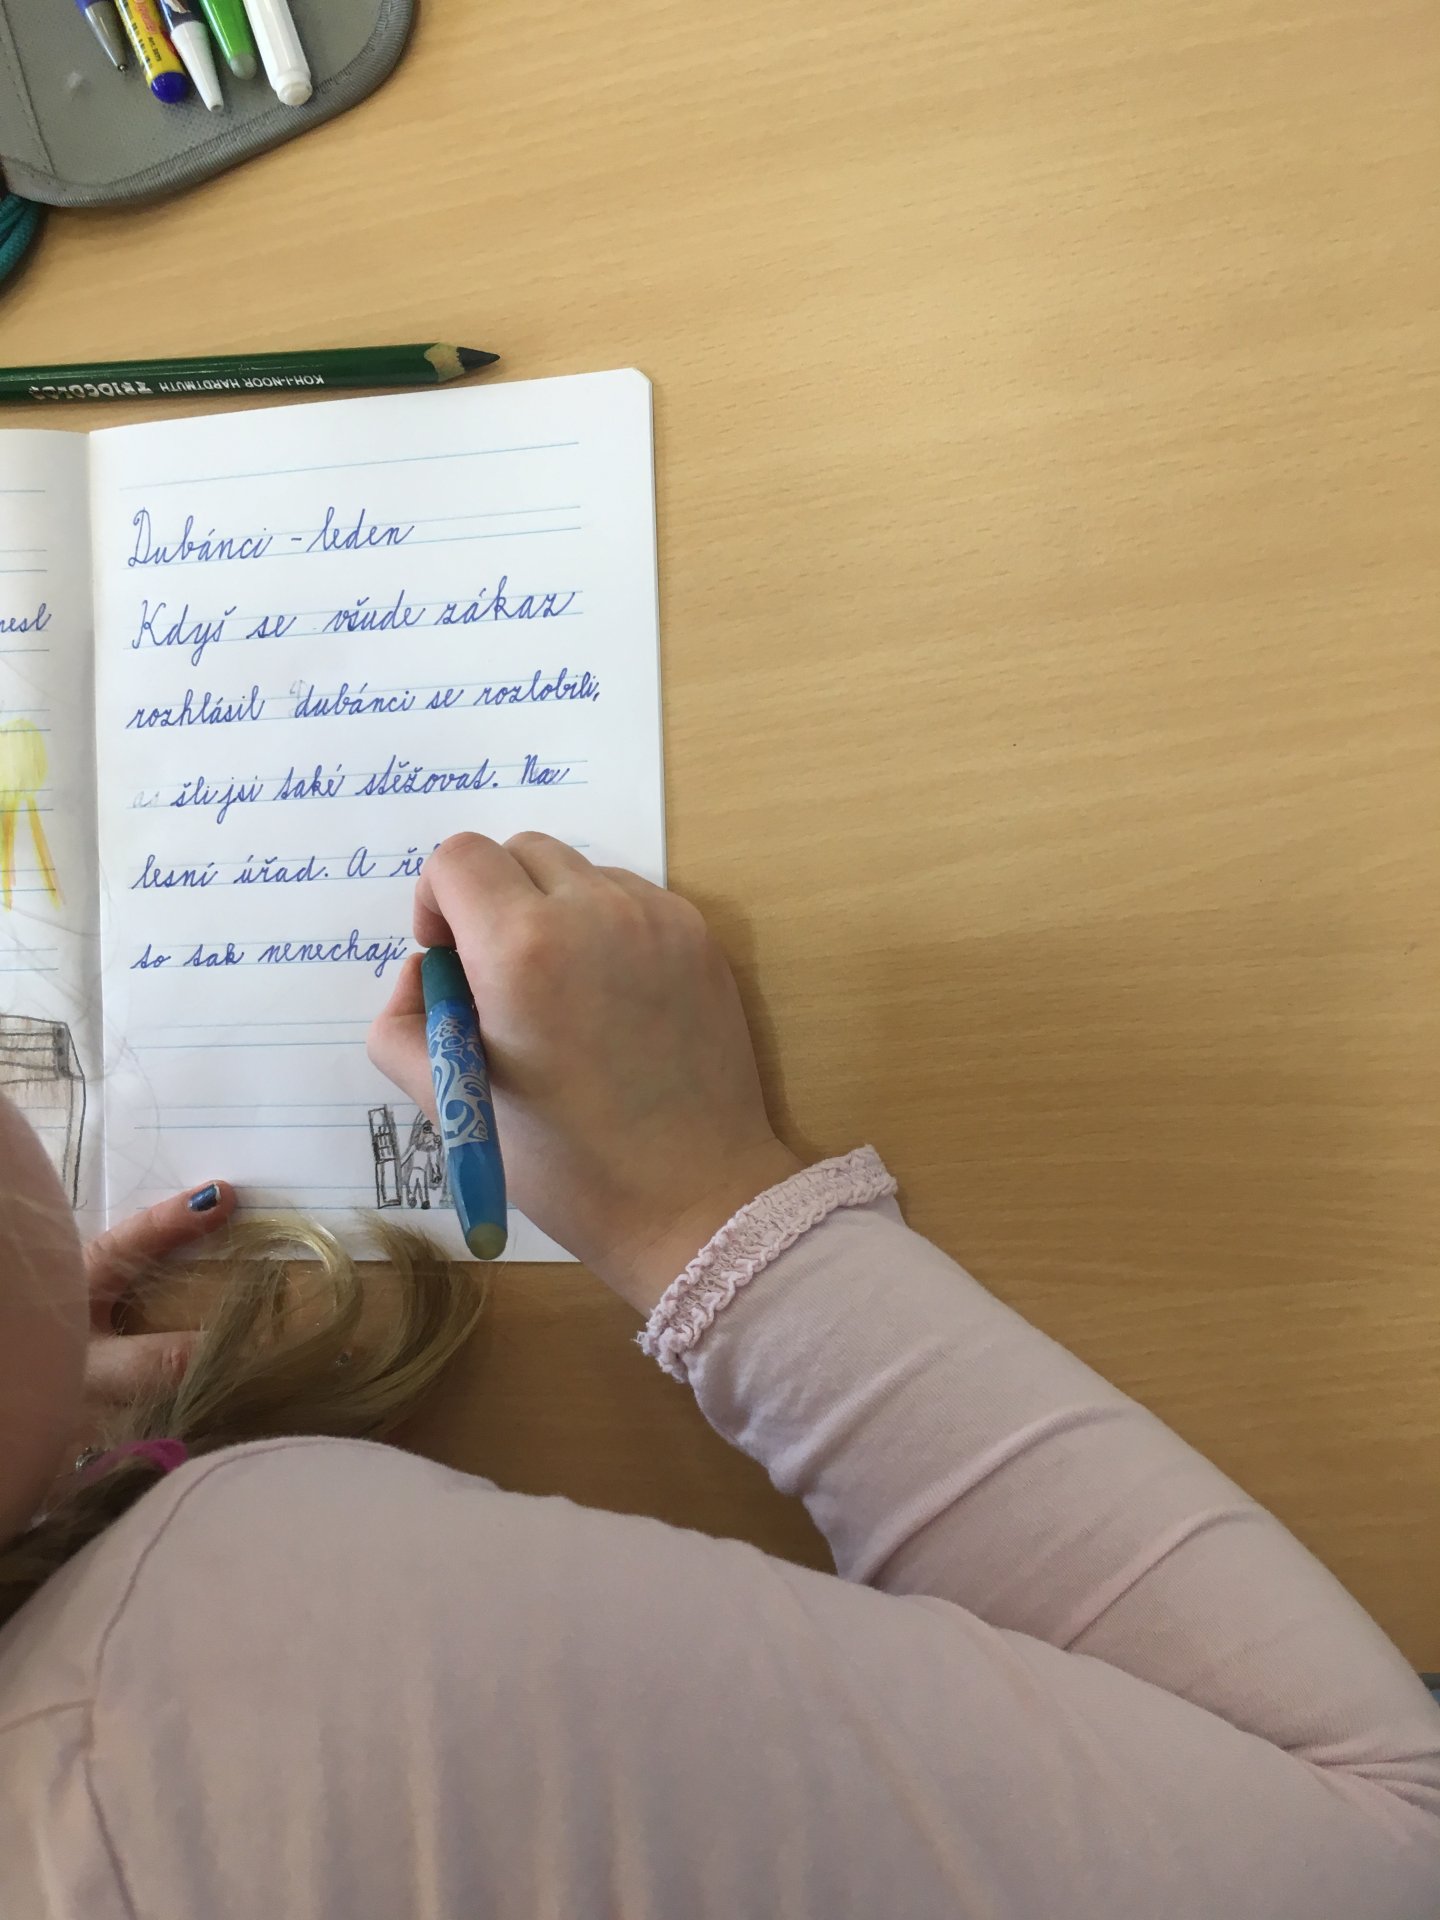 KOH-I-NOOR HARDTMUTH TRIOCOLOR
nesl
Dubánci - leden
Kdyš se všude zákaz
rozhlásil dubánci se rozlobili,
šli jsi také stěžovat. Na
lesní úřad. A
to tak nenechají